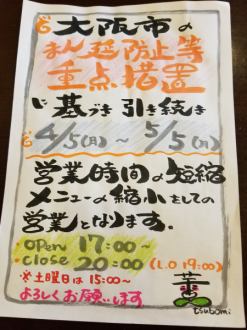 大阪市の
まん延防止等
重点措置
に基づき引き続き
4/5(月)~5/5(月)
営業時間の短縮
メニューの縮小をしての
営業となります.
open 17:00~
close 20:00 (L.O 19:00)
※土曜日は15:00~
よろしくお願いします
蕾
tsubomi